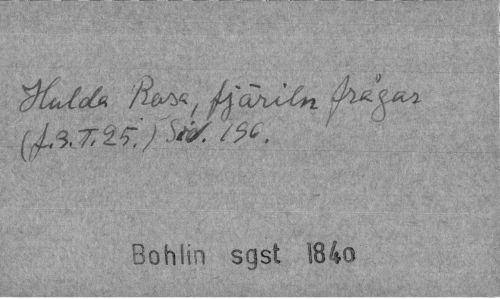 Hulda Rosa, fjäriln frågar
(f.3.T.25.) Sid. 196.
Bohlin sgst 1840